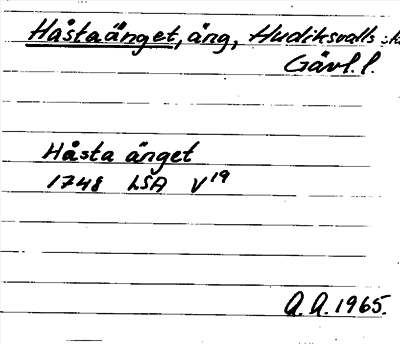 Håstaänget, äng, Hudiksvalls
Gävl.l.
Håsta änget
1748 LSA V19
A.A. 1965.